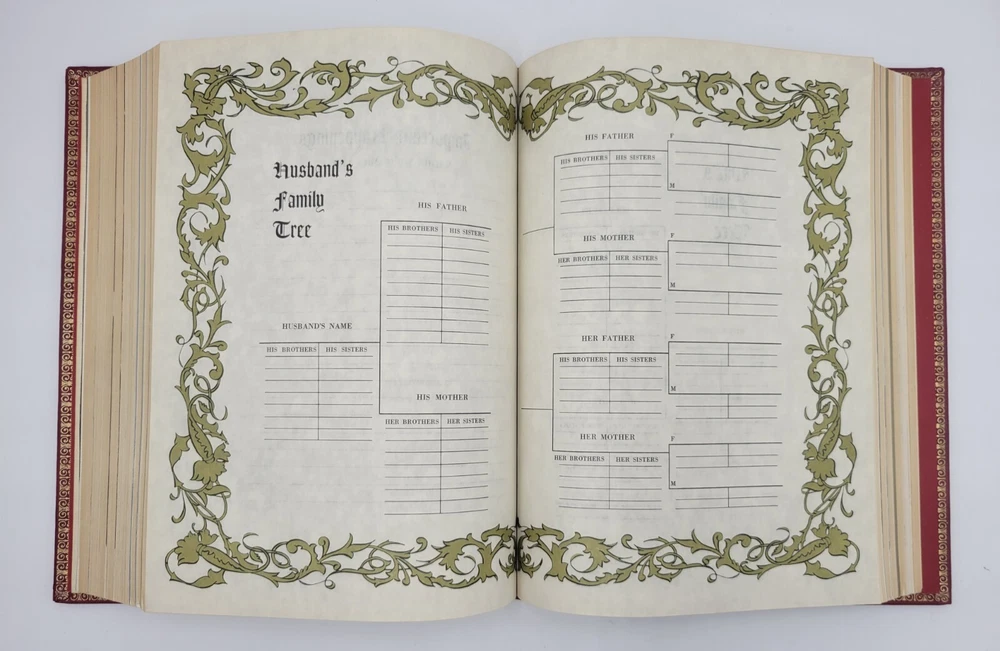 Husband's
Family
Tree
HUSBAND'S NAME
HIS BROTHERS HIS SISTERS
HIS FATHER
HIS BROTHERS HIS SISTERS
HIS MOTHER
HER BROTHERS HER SISTERS
HIS FATHER
HIS BROTHERS HIS SISTERS
HIS MOTHER
HER BROTHERS HER SISTERS
HER FATHER
HIS BROTHERS HIS SISTERS
HER MOTHER
HER BROTHERS HER SISTERS
F
M
F
M
F
M
F
M